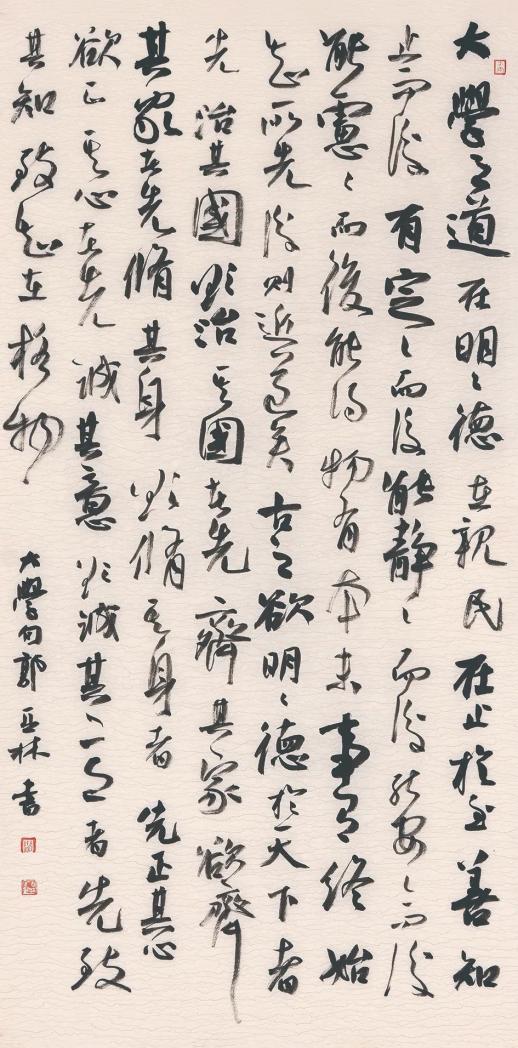 大學之道在明々德在親民在止於至善知
止而後有定々而後能靜々而後能安々而後
能慮々而後能得物有本末事有終始
知所先後則近道矣古之欲明々德於天下者
先治其國欲治其國者先齊其家欲齊
其家者先脩其身欲脩其身者先正其心
欲正其心者先誠其意欲誠其意者先致
其知致知在格物
大學句郭亞林書